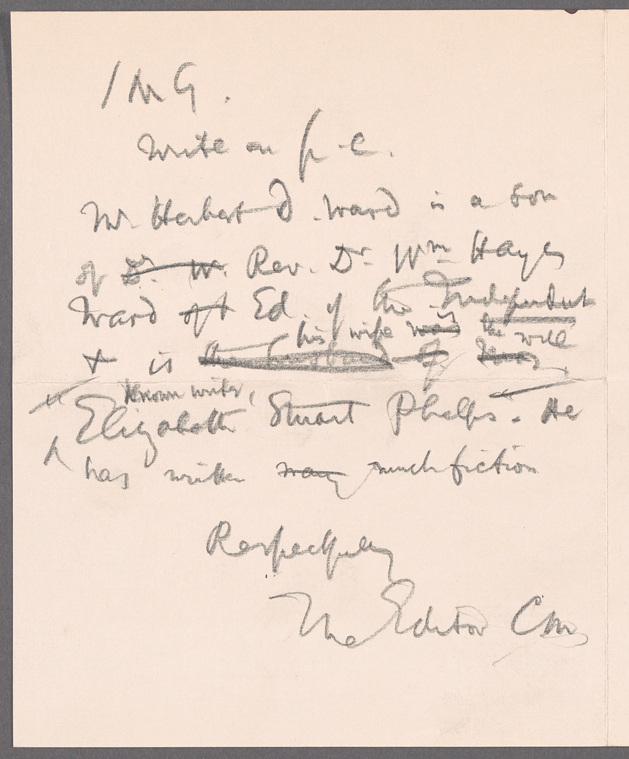 / M G.
Write on p. c.
Mr. Herbert D. Ward is a son
of Dr. W. Rev. Dr. Wm Hayes
Ward of t Ed. of the Independent
his wife was the well
& is the husband of
known writer,
"Elizabeth Stuart Phelps." He
has written many much fiction
Respectfully
The Editor